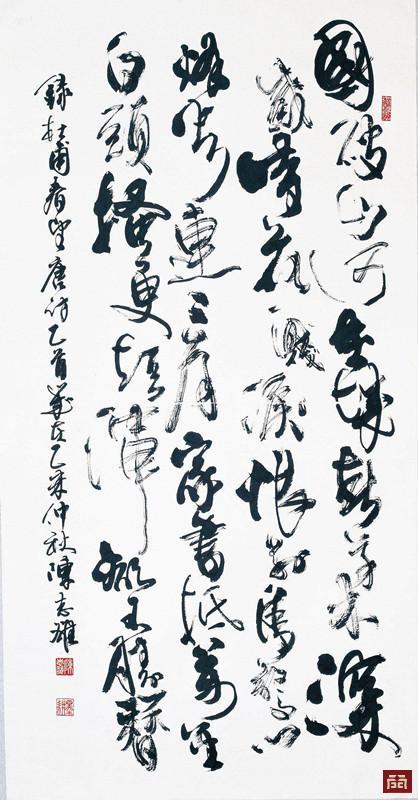 國破山河在城春草木深
感時花濺淚恨別鳥驚心
烽火連三月家書抵萬金
白頭搔更短渾欲不勝簪
錄杜甫春望唐詩乙首歲在乙未仲秋陳志雄